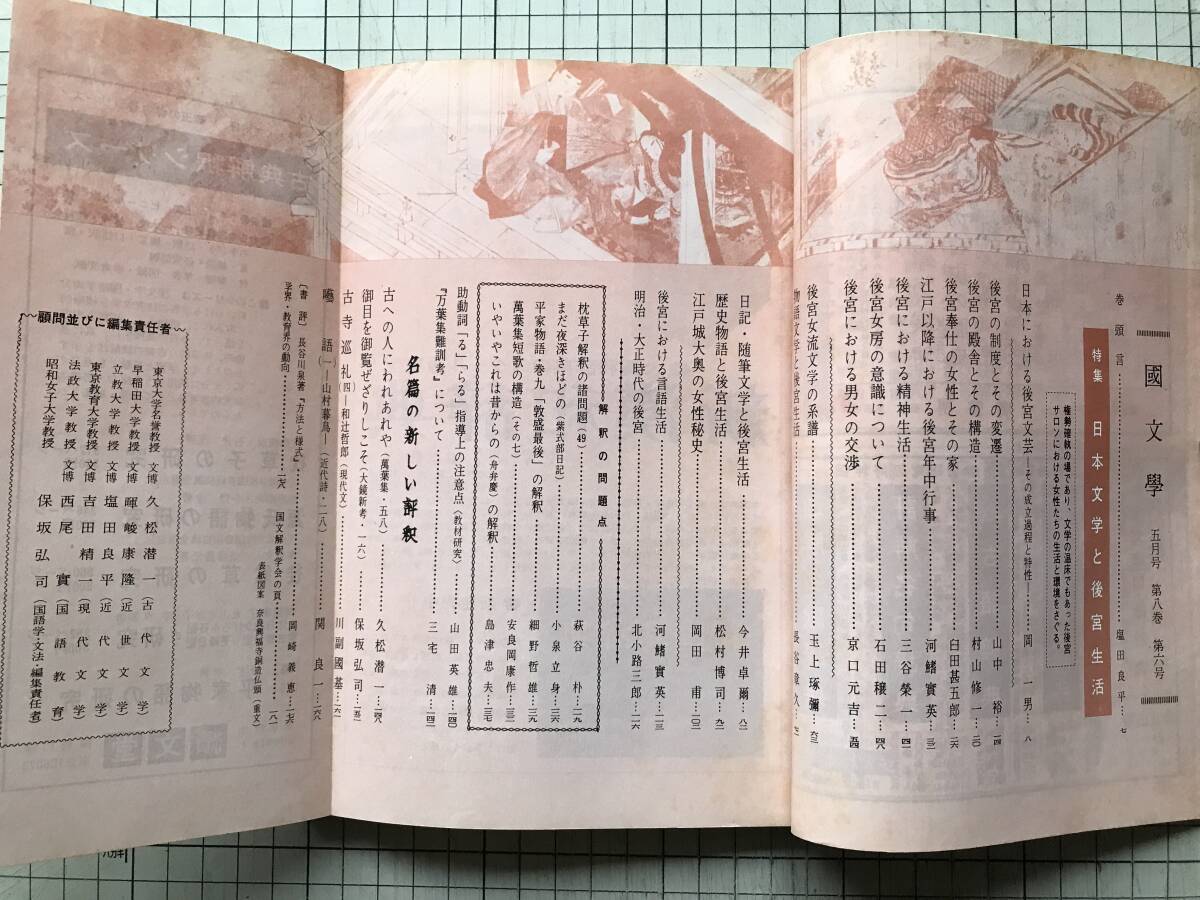 國文學 五月号 第八巻 第六号
巻頭言……塩田良平…七
特集 日本文学と後宮生活
権勢確執の場であり、文学の温床でもあった後宮
サロンにおける女性たちの生活と環境をさぐる。
日本における後宮文芸―その成立過程と特性―……岡一男…八
後宮の制度とその変遷……山中裕…一四
後宮の殿舎とその構造……村山修一…二〇
後宮奉仕の女性とその家……臼田甚五郎…二六
江戸以降における後宮年中行事……河鰭實英…三二
後宮における精神生活……三谷榮一…四一
後宮女房の意識について……石田穣二…四八
後宮における男女の交渉……京口元吉…五四
後宮女流文学の系譜……玉上琢彌…六三
物語文学と後宮生活
日記・随筆文学と後宮生活……今井卓爾…八二
歴史物語と後宮生活……松村博司…九二
江戸城大奥の女性秘史……岡田甫…一〇三
後宮における言語生活……河鰭實英…一二三
明治・大正時代の後宮……北小路三郎…一一六
解釈の問題点
枕草子解釈の諸問題(49)……萩谷朴…一二九
まだ夜深きほどの(紫式部日記)……小泉立身…一三六
平家物語・巻九「敦盛最後」の解釈……細野哲雄…一三九
萬葉集短歌の構造(その七)……安良岡康作…一三二
いやいやこれは昔からの(舟弁慶)の解釈……島津忠夫…一三七
助動詞「る」「らる」指導上の注意点(教材研究)……山田英雄…一四〇
『万葉集難訓考』について……三宅清…一四一
名篇の新しい評釈
古への人にわれあれや(萬葉集・五八)……久松潜一…一四八
御目を御覧ぜざりしこそ(大鏡新考・一六)……保坂弘司…一五二
古寺巡礼(四)―和辻哲郎(現代文)……川副國基…一六一
囈語(一)―山村暮鳥―(近代詩・二八)……関良一…一六八
〔書評〕長谷川泉著『方法と様式』……岡崎義恵…一七六
学界・教育界の動向……一七八
国文解釈学会の頁……一八一
表紙図案 奈良興福寺銅造仏頭(重文)
顧問並びに編集責任者
東京大学名誉教授 文博 久松潜一(古代文学)
早稲田大学教授 文博 暉峻康隆(近世文学)
立教大学教授 文博 塩田良平(近代文学)
東京教育大学教授 文博 吉田精一(現代文学)
法政大学教授 文博 西尾實(国語教育)
昭和女子大学教授 保坂弘司(国語学・文法・編集責任者)